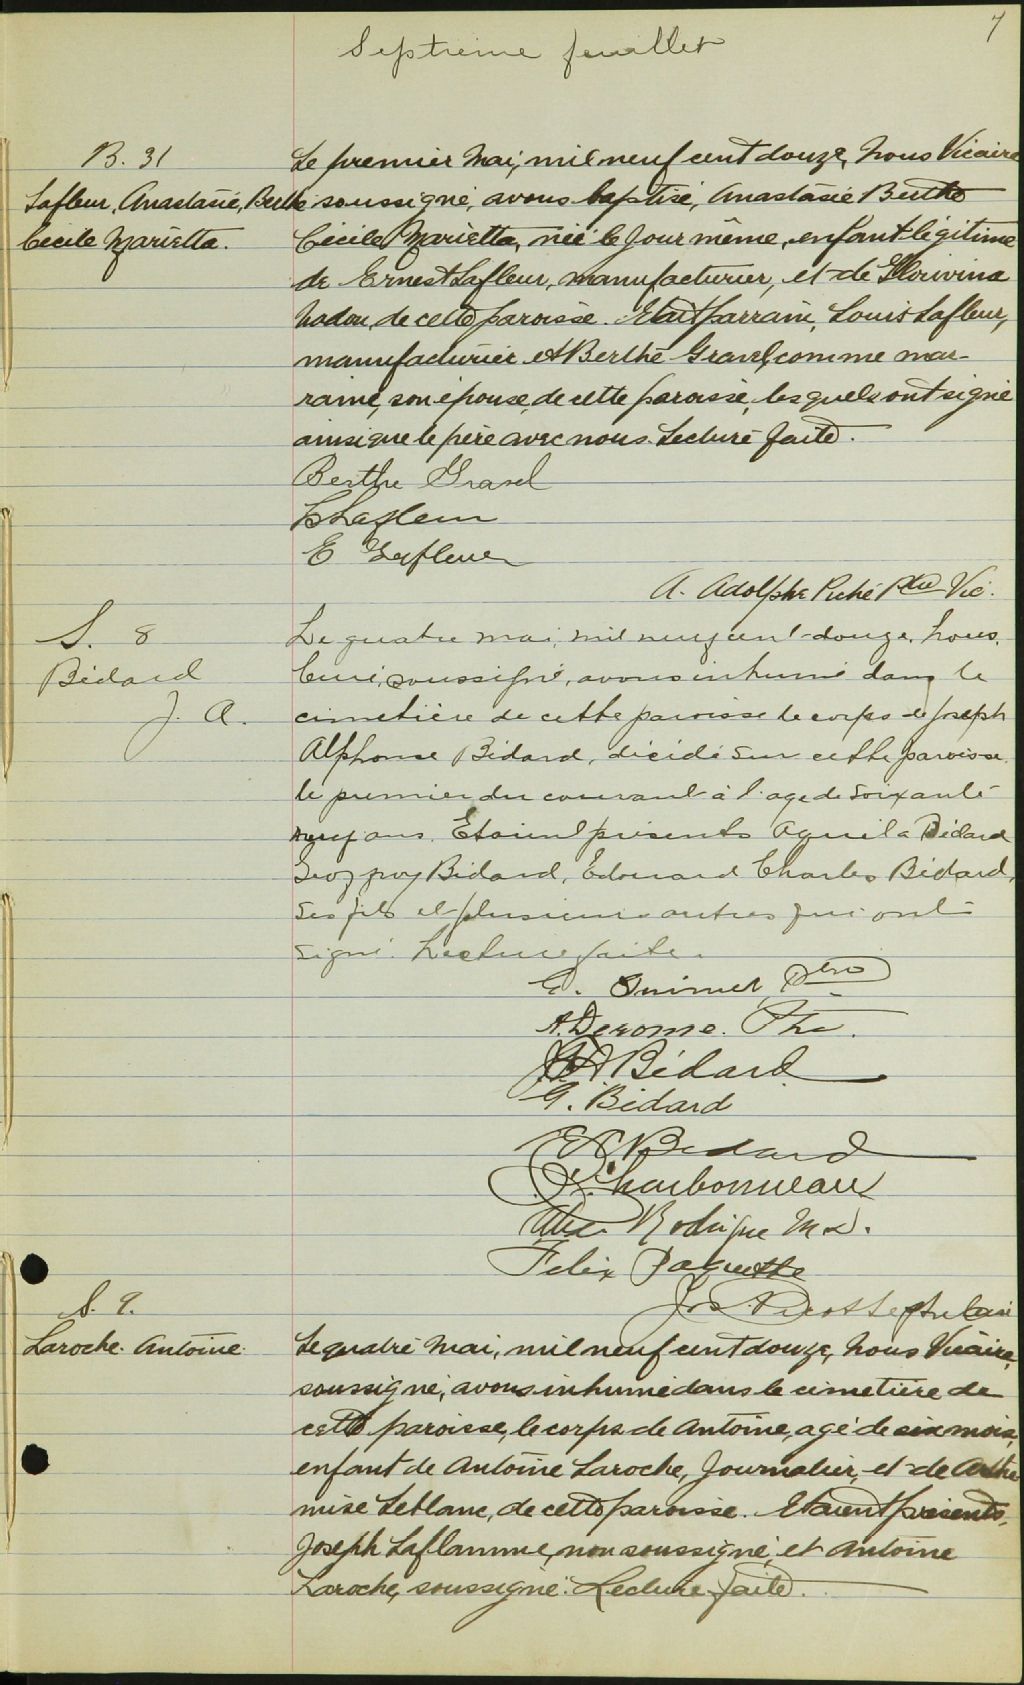 7
Septième feuillet
B. 31
Lafleur, Anastasie, Berthe
Cécile Marietta.
Le premier Mai, mil neuf cent douze, nous Vicaire
soussigné, avons baptisé, Anastasie Berthe
Cécile Marietta, née le jour même, enfant légitime
de Ernest Lafleur, manufacturier, et de
Nadon, de cette paroisse. Etait parrain, Louis Lafleur,
manufacturier et Berthe Gravel, comme mar-
raine, son épouse, de cette paroisse, lesquels ont signé
ainsi que le père avec nous. Lecture faite.
Berthe Gravel
Lafleur
E Lafleur
A. Adolphe Piché Ptre Vic.
S. 8
Bédard
J. A.
Le quatre mai, mil neuf cent-douze, nous,
Curé, soussigné, avons inhumé dans le
cimetière de cette paroisse le corps de Joseph
Alphonse Bédard, décédé sur cette paroisse
le premier du courant à l'age de soixante
neuf ans. Etaient présents Aquila Bédard
Geoffroy Bédard, Edouard Charles Bédard,
ses fils et plusieurs autres qui ont
signé. Lecture faite.
Ptre
A. Derome. Ptre.
A Bédard
G. Bédard
E C Bédard
Charbonneau
Rodrigue M.D.
Felix Paquette
Jos.
S. 9.
Laroche Antoine
Le quatre Mai, mil neuf cent douze, nous Vicaire,
soussigné, avons inhumé dans le cimetière de
cette paroisse, le corps de Antoine, agé de six mois,
enfant de Antoine Laroche, Journalier, et de Arthé
mise Leblanc, de cette paroisse. Etaient présents,
Joseph Laflamme, non soussigné, et Antoine
Laroche, soussigné. Lecture faite.